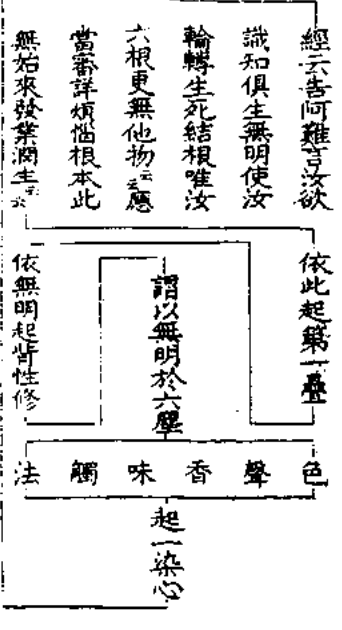 經云告阿難言汝欲
識知俱生無明使汝
輪轉生死結根唯汝
六根更無他物云云應
當審詳煩惱根本此
無始來發業潤生云云
依此起第一疊
謂以無明於六塵
依無明起背性修
色
聲
香
味
觸
法
起一染心